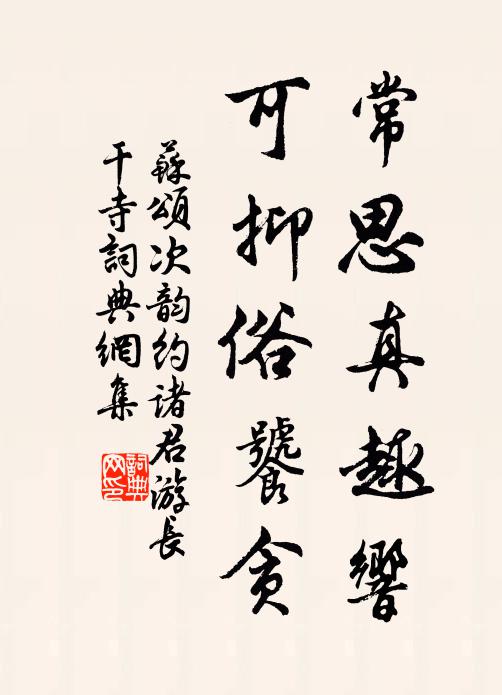 常思真趣響
可抑俗饕貪
蘇頌次韵約諸君游長
干寺詞典網集
詞典网印